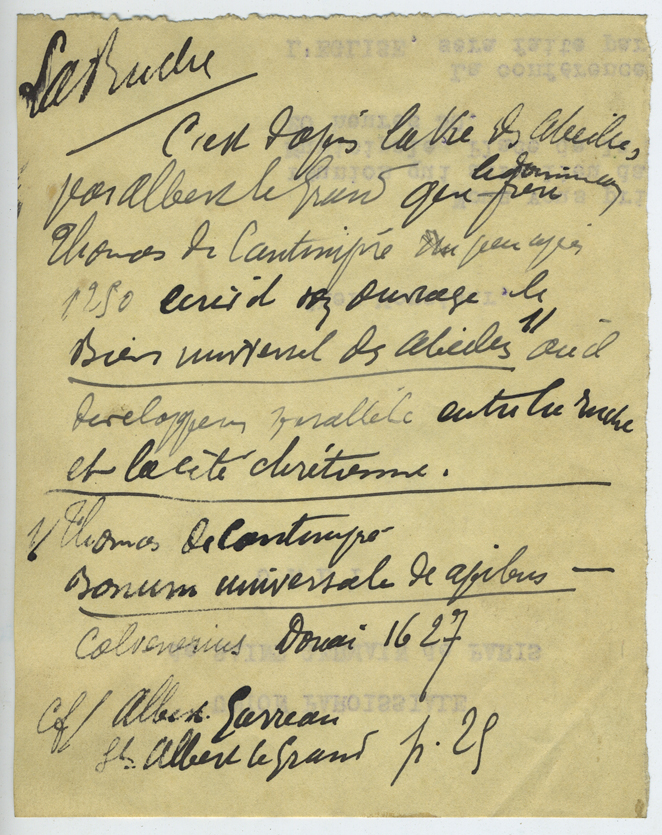 La Ruche
C'est d'après la Vie des Abeilles,
par Albert le Grand que frère le dominicain
Thomas de Cantimpré un peu après
1250 écrivit son ouvrage "le
Bien universel des Abeilles" 1/ où il
développe un parallèle entre la ruche
et la cité chrétienne.
1/ Thomas de Cantimpré
Bonum universale de apibus —
Colvenerius Douai 1627
cf/ Albert Garreau
St Albert le Grand p. 25